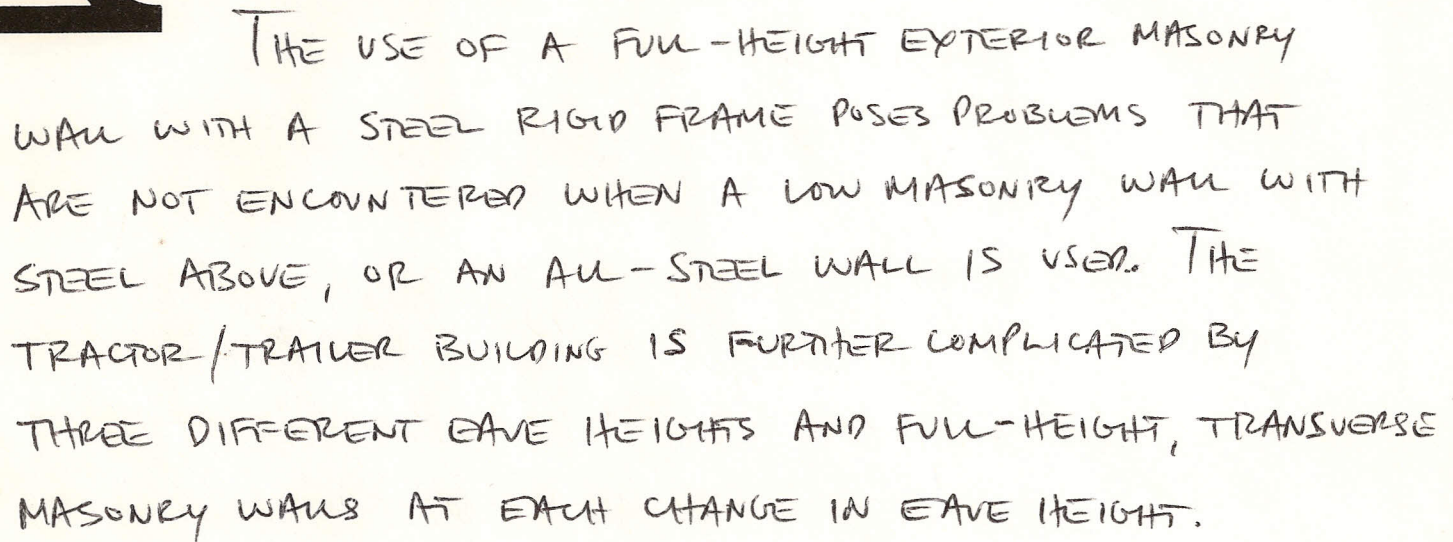 THE USE OF A FULL-HEIGHT EXTERIOR MASONRY
WALL WITH A STEEL RIGID FRAME POSES PROBLEMS THAT
ARE NOT ENCOUNTERED WHEN A LOW MASONRY WALL WITH
STEEL ABOVE, OR AN ALL-STEEL WALL IS USED. THE
TRACTOR/TRAILER BUILDING IS FURTHER COMPLICATED BY
THREE DIFFERENT EAVE HEIGHTS AND FULL-HEIGHT, TRANSVERSE
MASONRY WALLS AT EACH CHANGE IN EAVE HEIGHT.